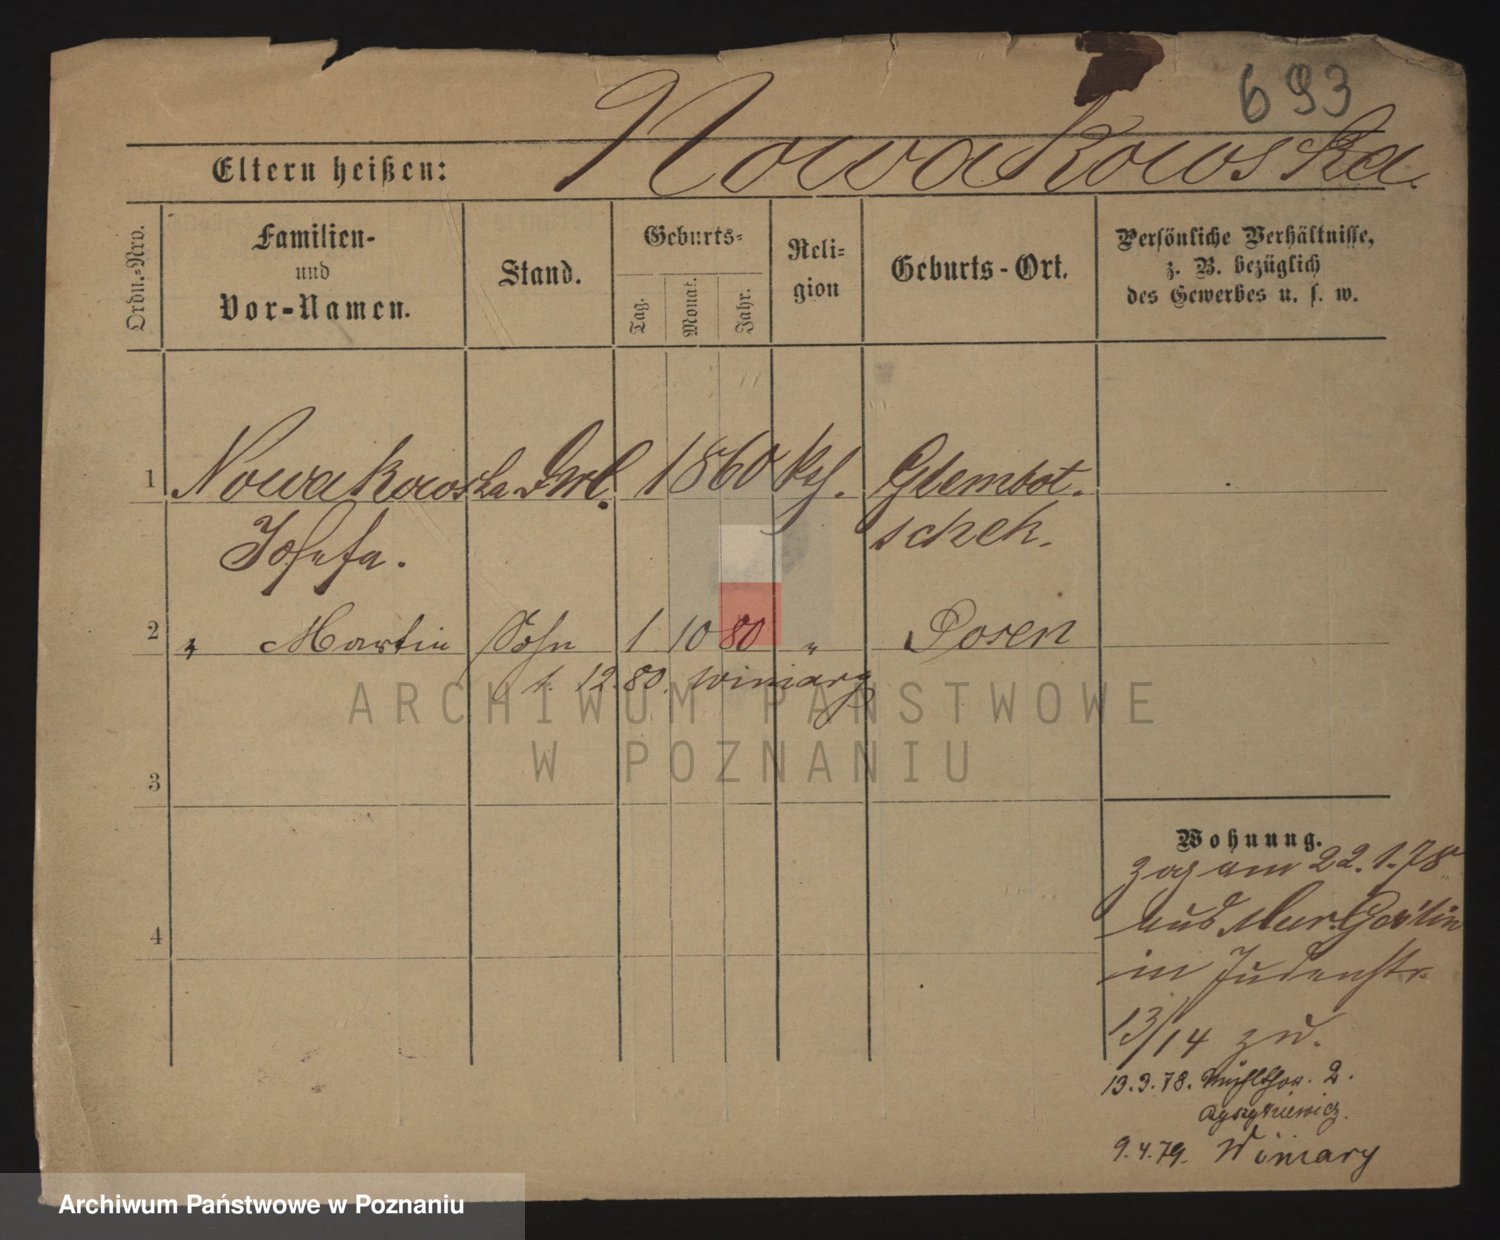 693
Nowakowska.
Eltern heißen:
Ordn.-Nro.
Familien-
und
Vor-Namen.
Stand.
Geburts-
Tag.
Monat.
Jahr.
Reli-
gion
Geburts-Ort.
Persönliche Verhältnisse,
z. B. bezüglich
des Gewerbes u. s. w.
1 Nowakowska 1860 kth. Glembot-
Josefa. schek.
2 " Martin Sohn 1 10 80 " Posen
1. 12. 80. Winiary
ARCHIWUM PAŃSTWOWE
W POZNANIU
3
4
Wohnung.
zog am 22.1.78
aus Mur. Goslin
in Judenstr.
13/14 zu.
13.3.78. Mühlthor. 2.
9.4.79. Winiary
Archiwum Państwowe w Poznaniu